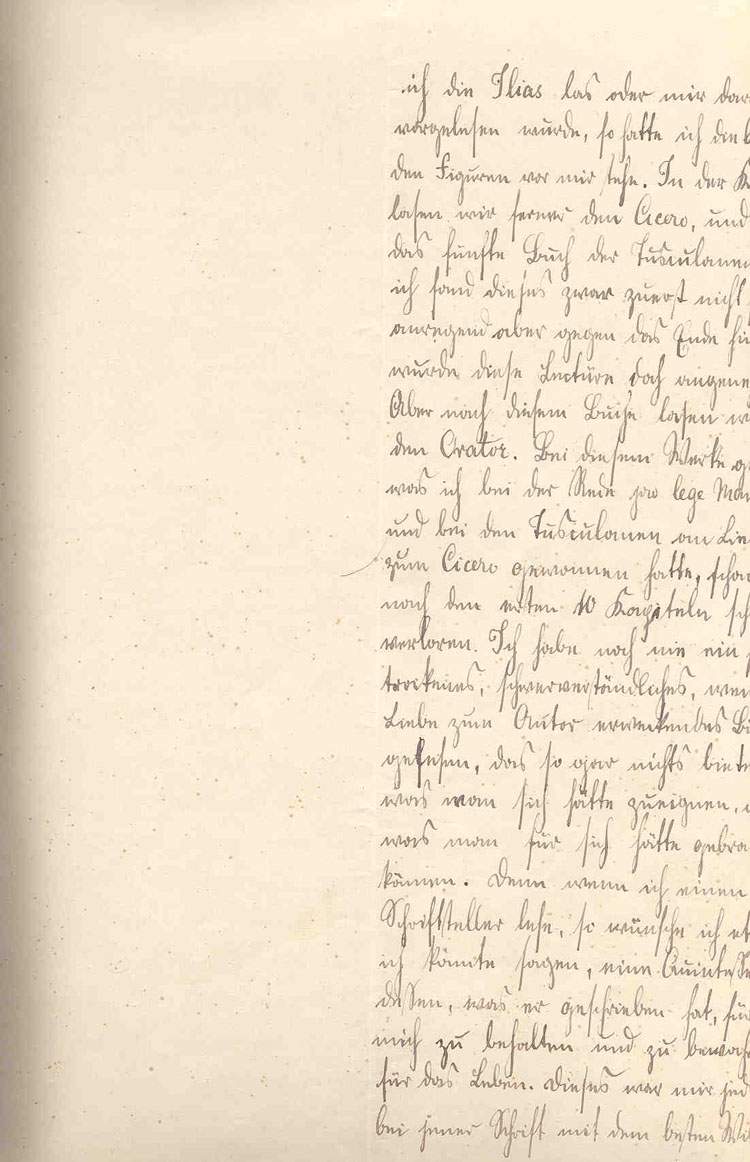 ich die Ilias las oder mir dar
vorgelesen wurde, so hatte ich die b
den Figuren vor mir stehn. In der K
lasen wir ferner den Cicero, und
das fünfte Buch der Tusculanen
ich fand dieses zwar zuerst nicht
anregend aber gegen das Ende hi
wurde diese Lectüre doch angene
Aber nach diesem Buche lasen w
den Orator. Bei diesem Werke g
was ich bei der Rede pro lege Man
und bei den Tusculanen an Lie
zum Cicero gewonnen hatte, scho
nach den ersten 10 Kapiteln sch
verloren. Ich habe noch nie ein
trockenes, schwerverständliches, wen
Liebe zum Autor erweckendes Bü
gelesen, das so gar nichts biete
was man sich hätte zueignen,
was man für sich hätte gebra
können. Denn wenn ich einen
Schriftsteller lese, so wünsche ich et
ich könnte sagen, eine Quintesse
dessen, was er geschrieben hat, für
mich zu behalten und zu bewah
für das Leben. Dieses war mir jed
bei jener Schrift mit dem besten Wil